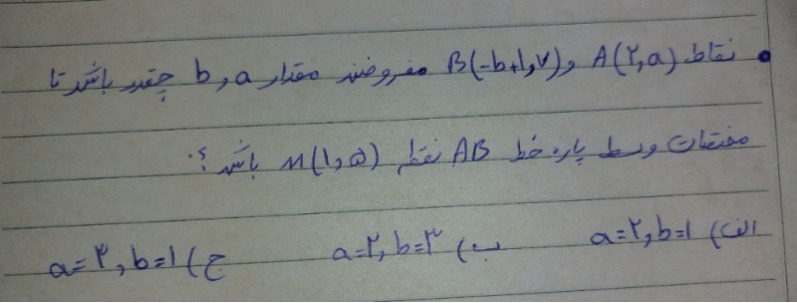 • نقاط A(۲,a) و B(-b+۱,۷) مفروضند مقدار a و b چقدر باشد تا
مختصات وسط پاره خط AB نقطه M(۱,۵) باشد؟
الف) a=۲, b=۱ ب) a=۲, b=۳ ج) a=۳, b=۱